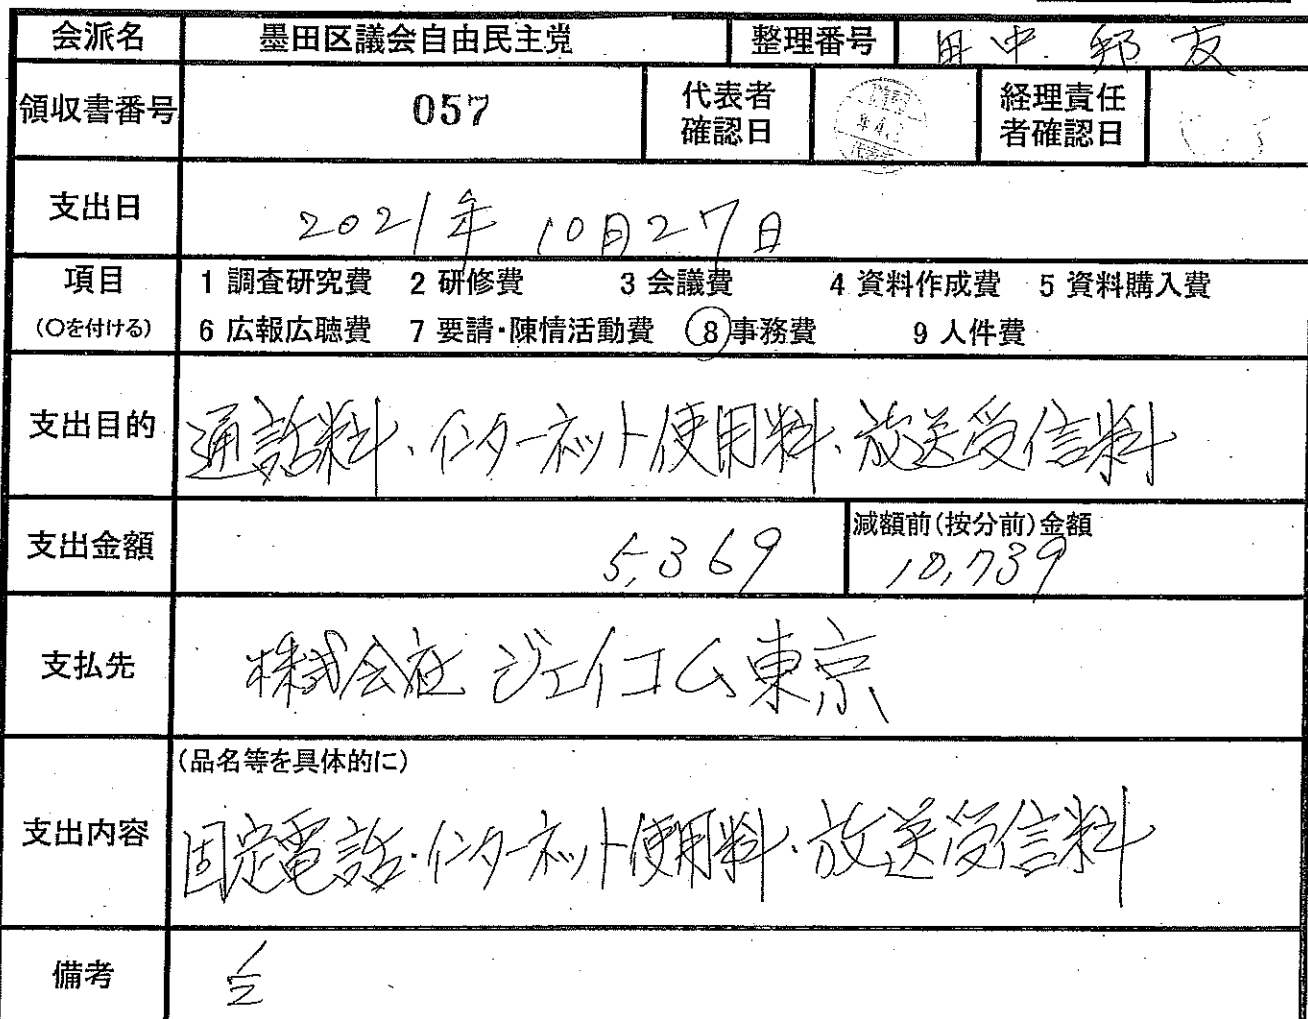 会派名 墨田区議会自由民主党 整理番号 田中 邦友
領収書番号 057 代表者確認日 経理責任者確認日
支出日 2021年 10月27日
項目 1 調査研究費 2 研修費 3 会議費 4 資料作成費 5 資料購入費
(○を付ける) 6 広報広聴費 7 要請・陳情活動費 8 事務費 9 人件費
支出目的 通話料・インターネット使用料・放送受信料
支出金額 5,369 減額前(按分前)金額 10,739
支払先 株式会社 ジェイコム東京
(品名等を具体的に)
支出内容 固定電話・インターネット使用料・放送受信料
備考